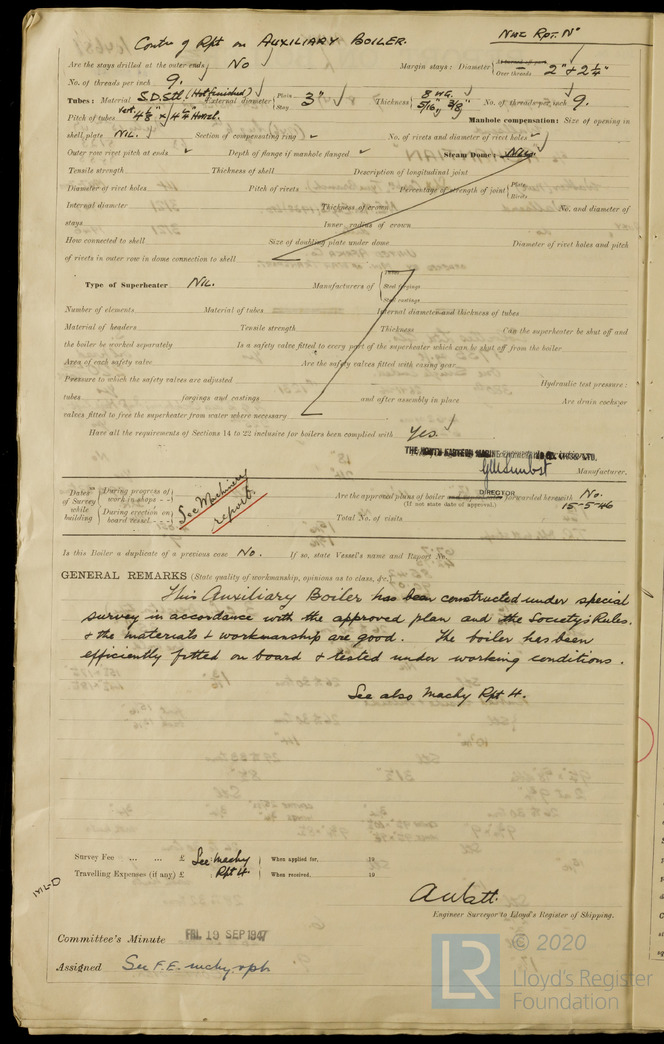 Contn of Rpt on AUXILIARY BOILER. Nwc RPT. No
Are the stays drilled at the outer ends No Margin stays: Diameter { At turned off part or Over threads 2" & 2¼"
No. of threads per inch 9. 
Tubes: Material S.D. Stl. (Hot finished) External diameter { Plain Stay 3" Thickness { 8 W.G. 5/16", 3/8" No. of threads per inch 9.
Pitch of tubes Vert. 4⅛" x 4¼" Horizl. Manhole compensation: Size of opening in
shell plate NIL. Section of compensating ring No. of rivets and diameter of rivet holes
Outer row rivet pitch at ends Depth of flange if manhole flanged Steam Dome: NIL.
Tensile strength Thickness of shell Description of longitudinal joint
Diameter of rivet holes Pitch of rivets Percentage of strength of joint { Plate Rivets
Internal diameter Thickness of crown No. and diameter of
stays Inner radius of crown
How connected to shell Size of doubling plate under dome Diameter of rivet holes and pitch
of rivets in outer row in dome connection to shell
Type of Superheater NIL. Manufacturers of { Tubes Steel forgings Steel castings
Number of elements Material of tubes Internal diameter and thickness of tubes
Material of headers Tensile strength Thickness Can the superheater be shut off and
the boiler be worked separately Is a safety valve fitted to every part of the superheater which can be shut off from the boiler
Area of each safety valve Are the safety valves fitted with easing gear
Pressure to which the safety valves are adjusted Hydraulic test pressure:
tubes forgings and castings and after assembly in place Are drain cocks or
valves fitted to free the superheater from water where necessary
Have all the requirements of Sections 14 to 22 inclusive for boilers been complied with Yes.
THE NORTH EASTERN MARINE ENGINEERING CO. (1938) LTD.
Manufacturer.
DIRECTOR
Dates of Survey while building { During progress of work in shops - - During erection on board vessel - - - } See Machinery report. Are the approved plans of boiler forwarded herewith No.
(If not state date of approval.) 15-5-46
Total No. of visits
Is this Boiler a duplicate of a previous case No. If so, state Vessel's name and Report No.
GENERAL REMARKS (State quality of workmanship, opinions as to class, &c.)
This Auxiliary Boiler has been constructed under special
survey in accordance with the approved plan and the Society's Rules.
& the materials & workmanship are good. The boiler has been
efficiently fitted on board & tested under working conditions.
See also Machy Rpt 4.
Survey Fee ... ... £ See machy When applied for, 19
Travelling Expenses (if any) £ Rpt 4. When received, 19
Engineer Surveyor to Lloyd's Register of Shipping.
Committee's Minute FRI. 19 SEP 1947
Assigned See F.E. machy. rpt.
LR © 2020
Lloyd's Register
Foundation